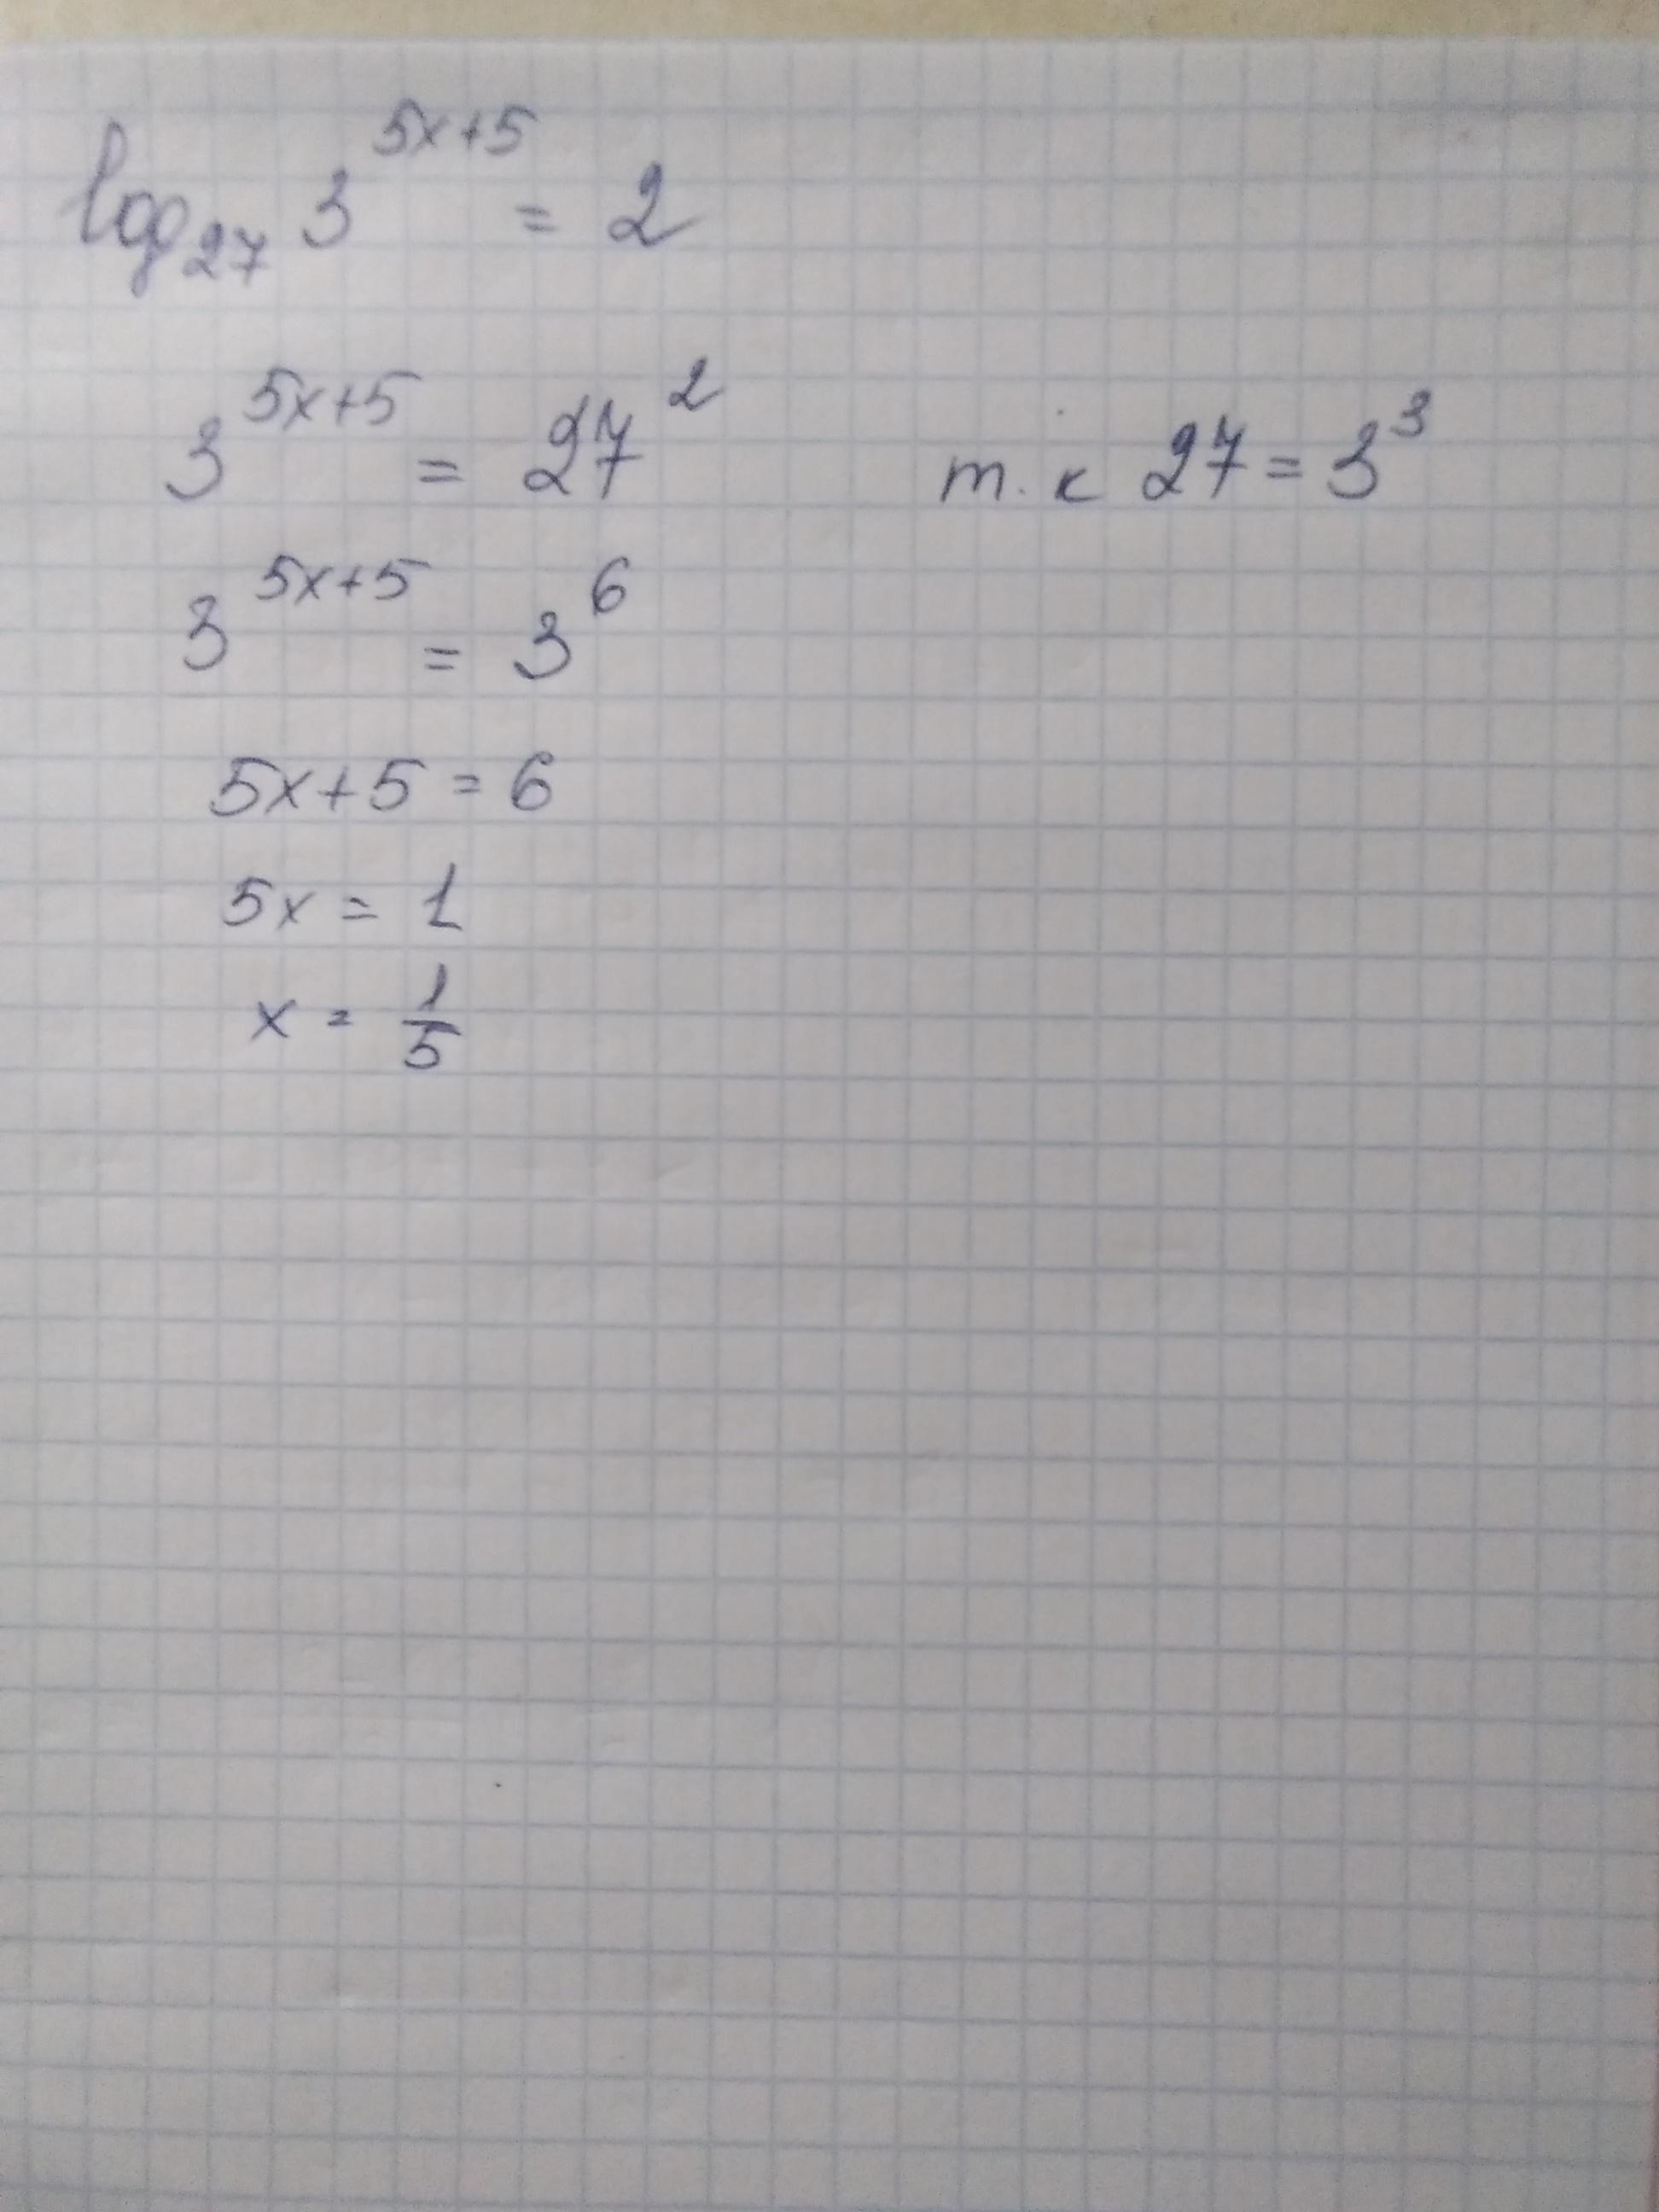 log₂₇ 3^(5x+5) = 2
3^(5x+5) = 27² т.к 27 = 3³
3^(5x+5) = 3⁶
5x+5 = 6
5x = 1
x = 1/5